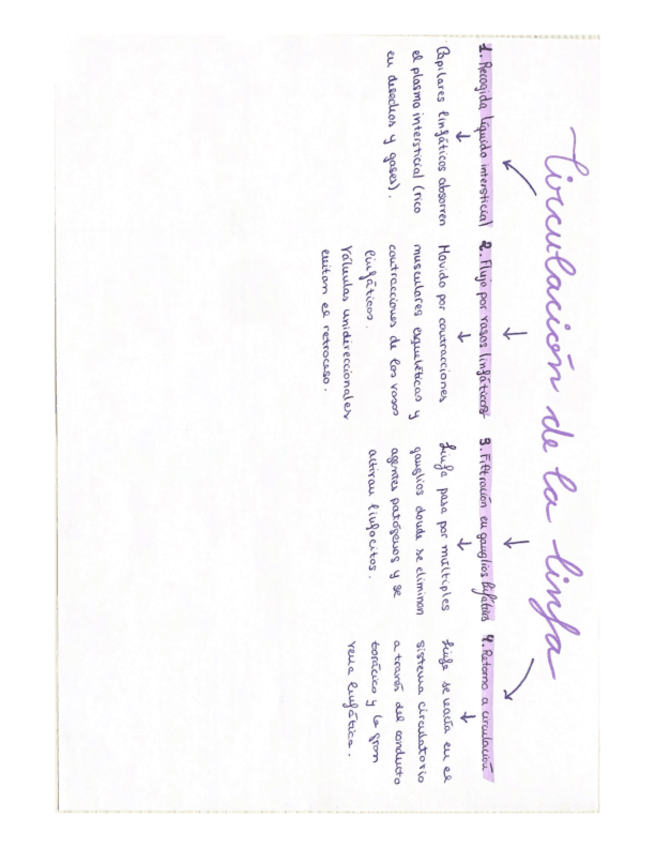 Circulación de la linfa
1. Recogida líquido intersticial
Capilares linfáticos absorven
el plasma intersticial (rico
en desechos y gases).
2. Flujo por vasos linfáticos
Movido por contracciones
musculares esqueléticas y
contracciones de los vasos
linfáticos.
Válvulas unidireccionales
evitan el retroceso.
3. Filtración en ganglios linfáticos
Linfa pasa por múltiples
ganglios donde se eliminan
agentes patógenos y se
activan linfocitos.
4. Retorno a circulación
Linfa se vacía en el
sistema circulatorio
a través del conducto
torácico y la gran
vena linfática.